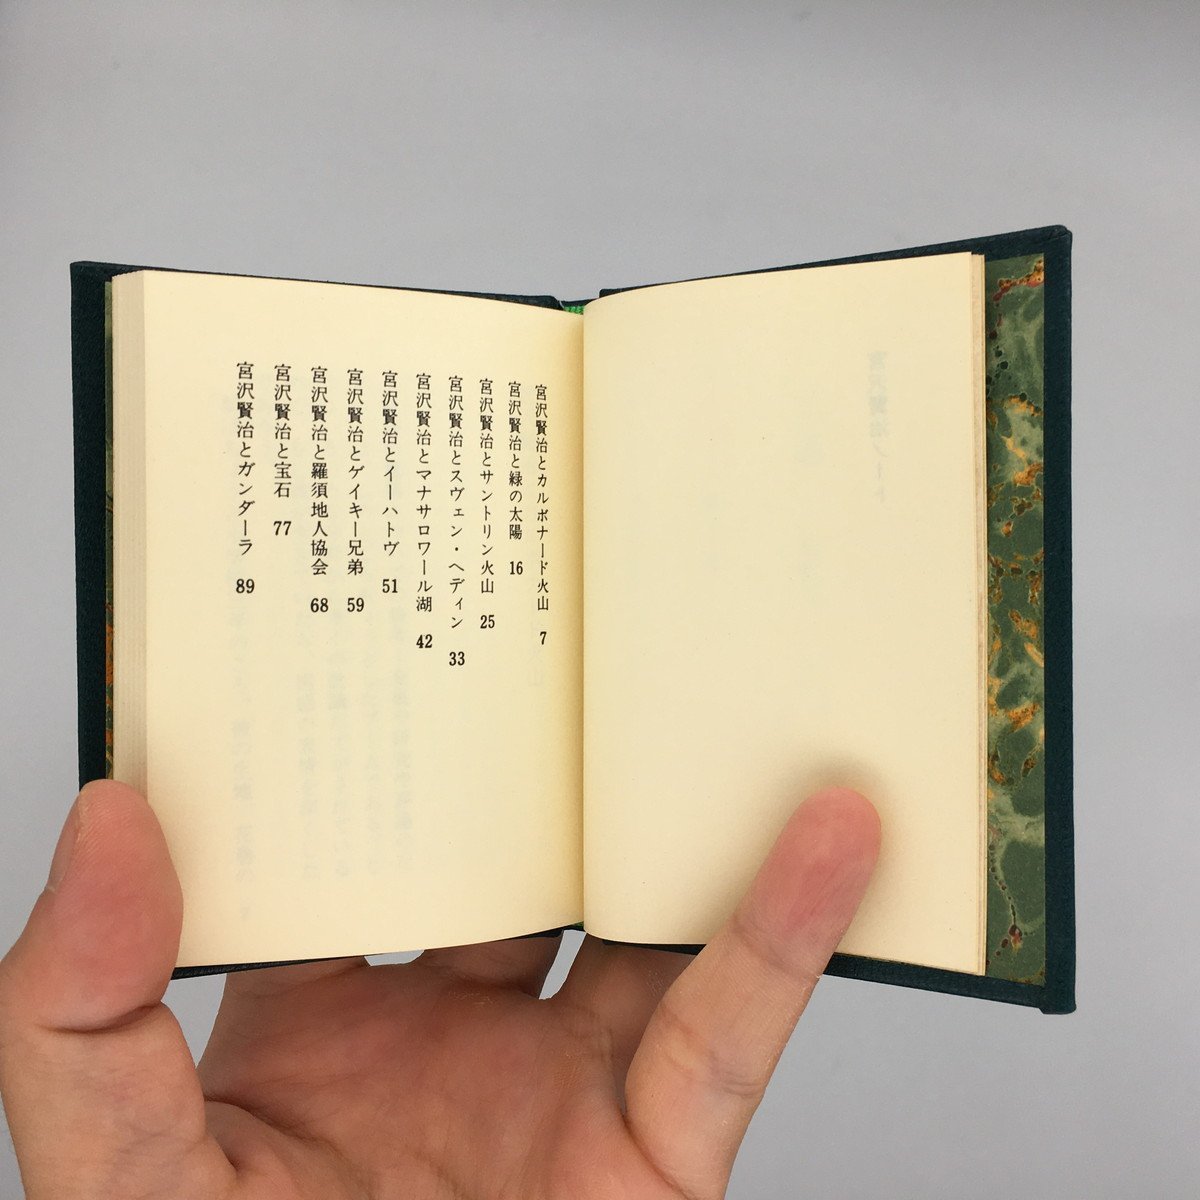 宮沢賢治とカルボナード火山 7
宮沢賢治と緑の太陽 16
宮沢賢治とサントリン火山 25
宮沢賢治とスヴェン・ヘディン 33
宮沢賢治とマナサロワール湖 42
宮沢賢治とイーハトヴ 51
宮沢賢治とゲイキー兄弟 59
宮沢賢治と羅須地人協会 68
宮沢賢治と宝石 77
宮沢賢治とガンダーラ 89